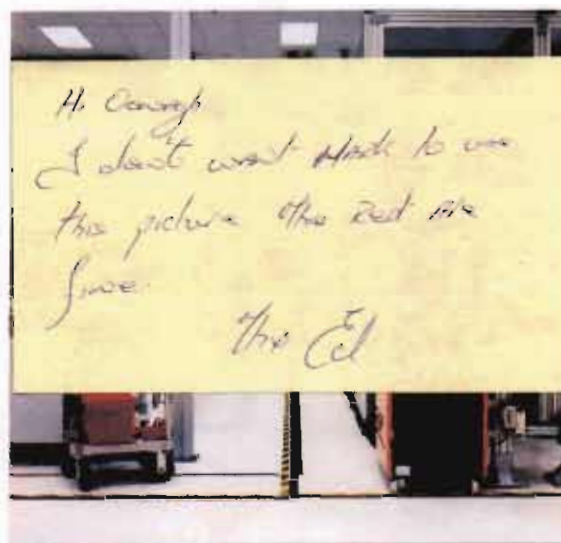 Hi Oonagh
I don't want Mark to use
this picture The Rest Are
fine.
The Ed